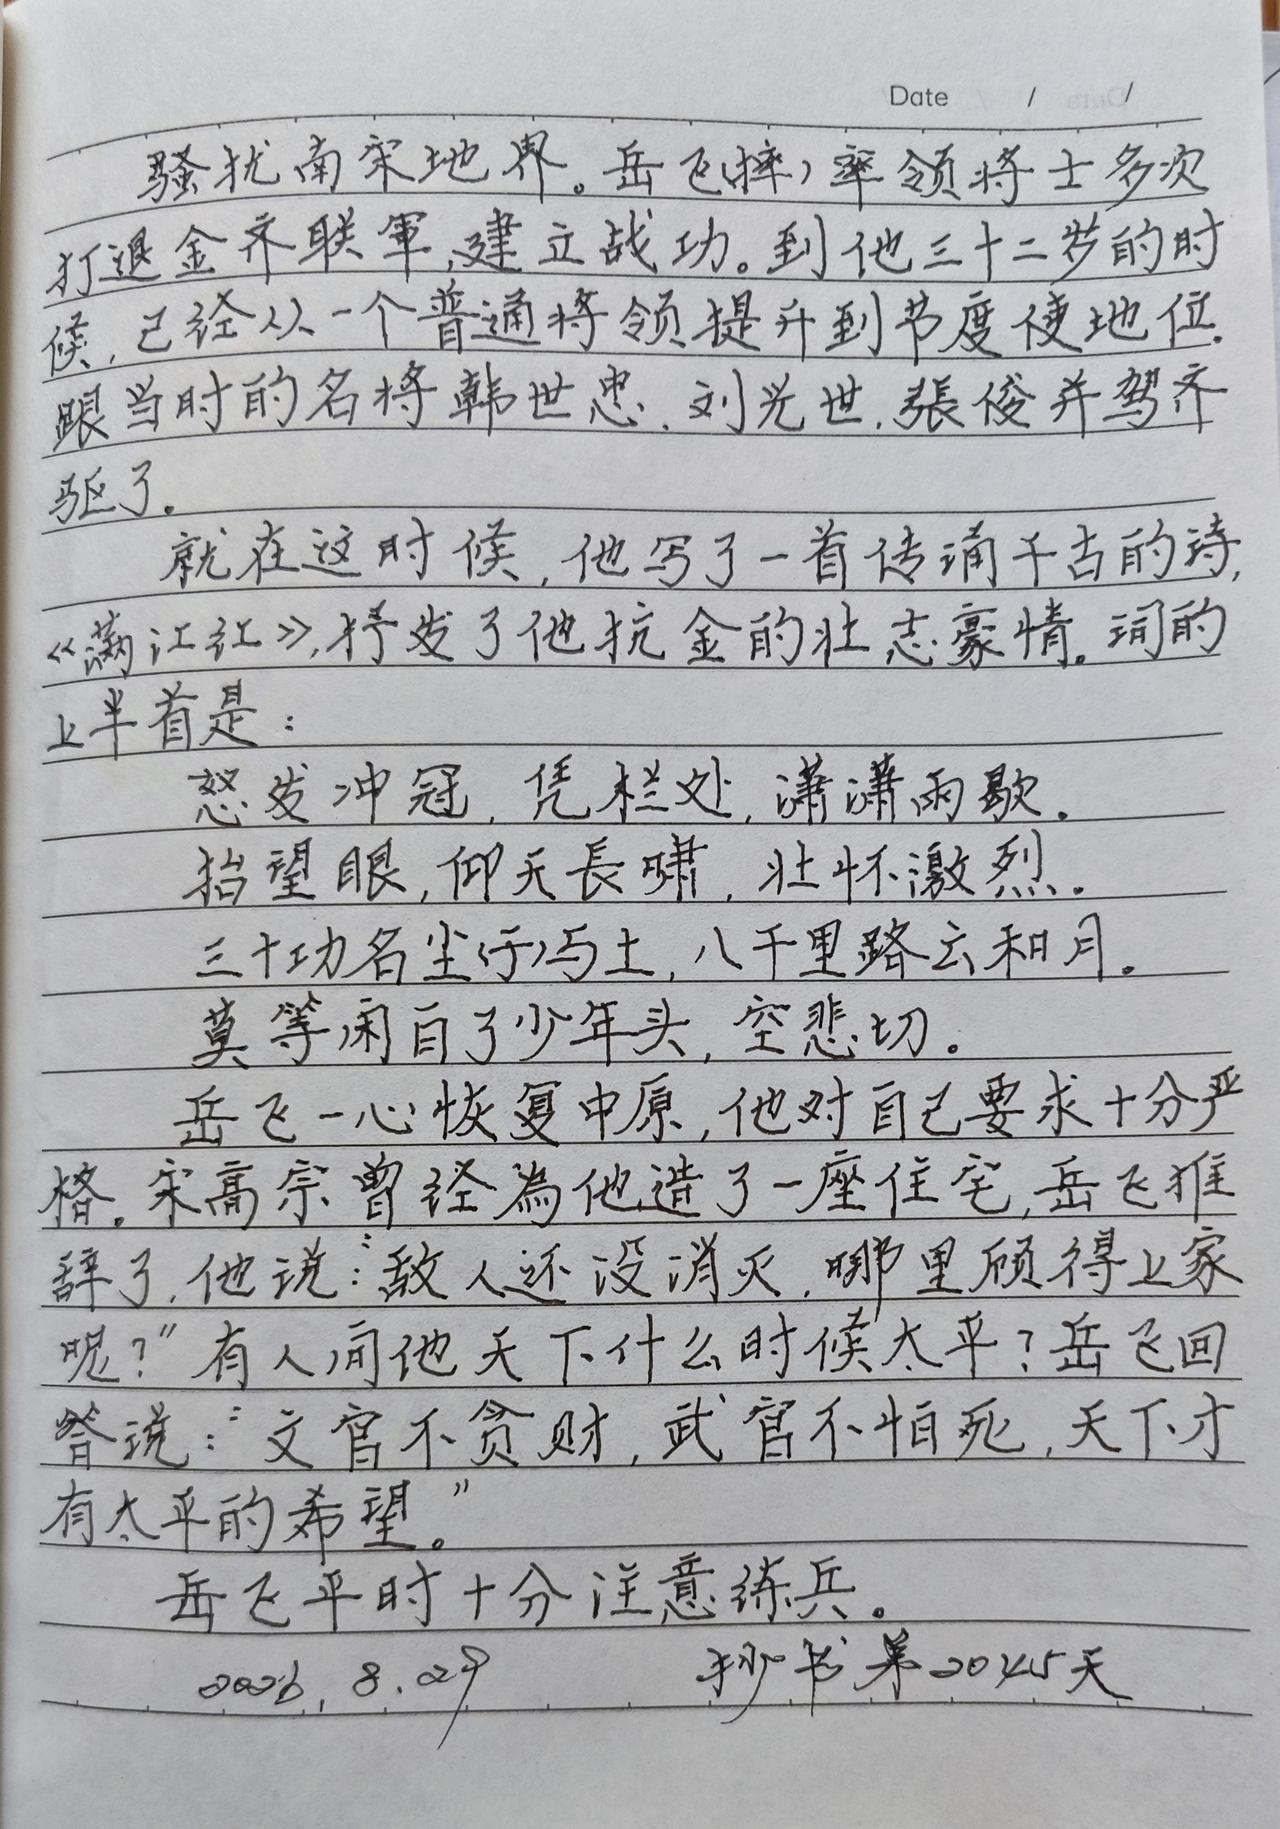 Date / /
骚扰南宋地界。岳飞(摔)率领将士多次
打退金齐联軍,建立战功。到他三十二岁的时
候,已经从一个普通将领提升到节度使地位.
跟当时的名将韩世忠、刘光世,張俊并驾齐
驱了。
就在这时候,他写了一首传诵千古的诗,
《满江红》,抒发了他抗金的壮志豪情。词的
上半首是:
怒发冲冠,凭栏处,潇潇雨歇.
抬望眼,仰天長啸,壮怀激烈.
三十功名尘(于)与土,八千里路云和月。
莫等闲白了少年头,空悲切。
岳飞一心恢复中原,他对自己要求十分严
格。宋高宗曾经為他造了一座住宅,岳飞推
辞了,他说:“敌人还没消灭,哪里顾得上家
呢?”有人问他天下什么时候太平?岳飞回
答说:“文官不贪财,武官不怕死,天下才
有太平的希望。”
岳飞平时十分注意练兵。
2026.8.29 抄书第2045天